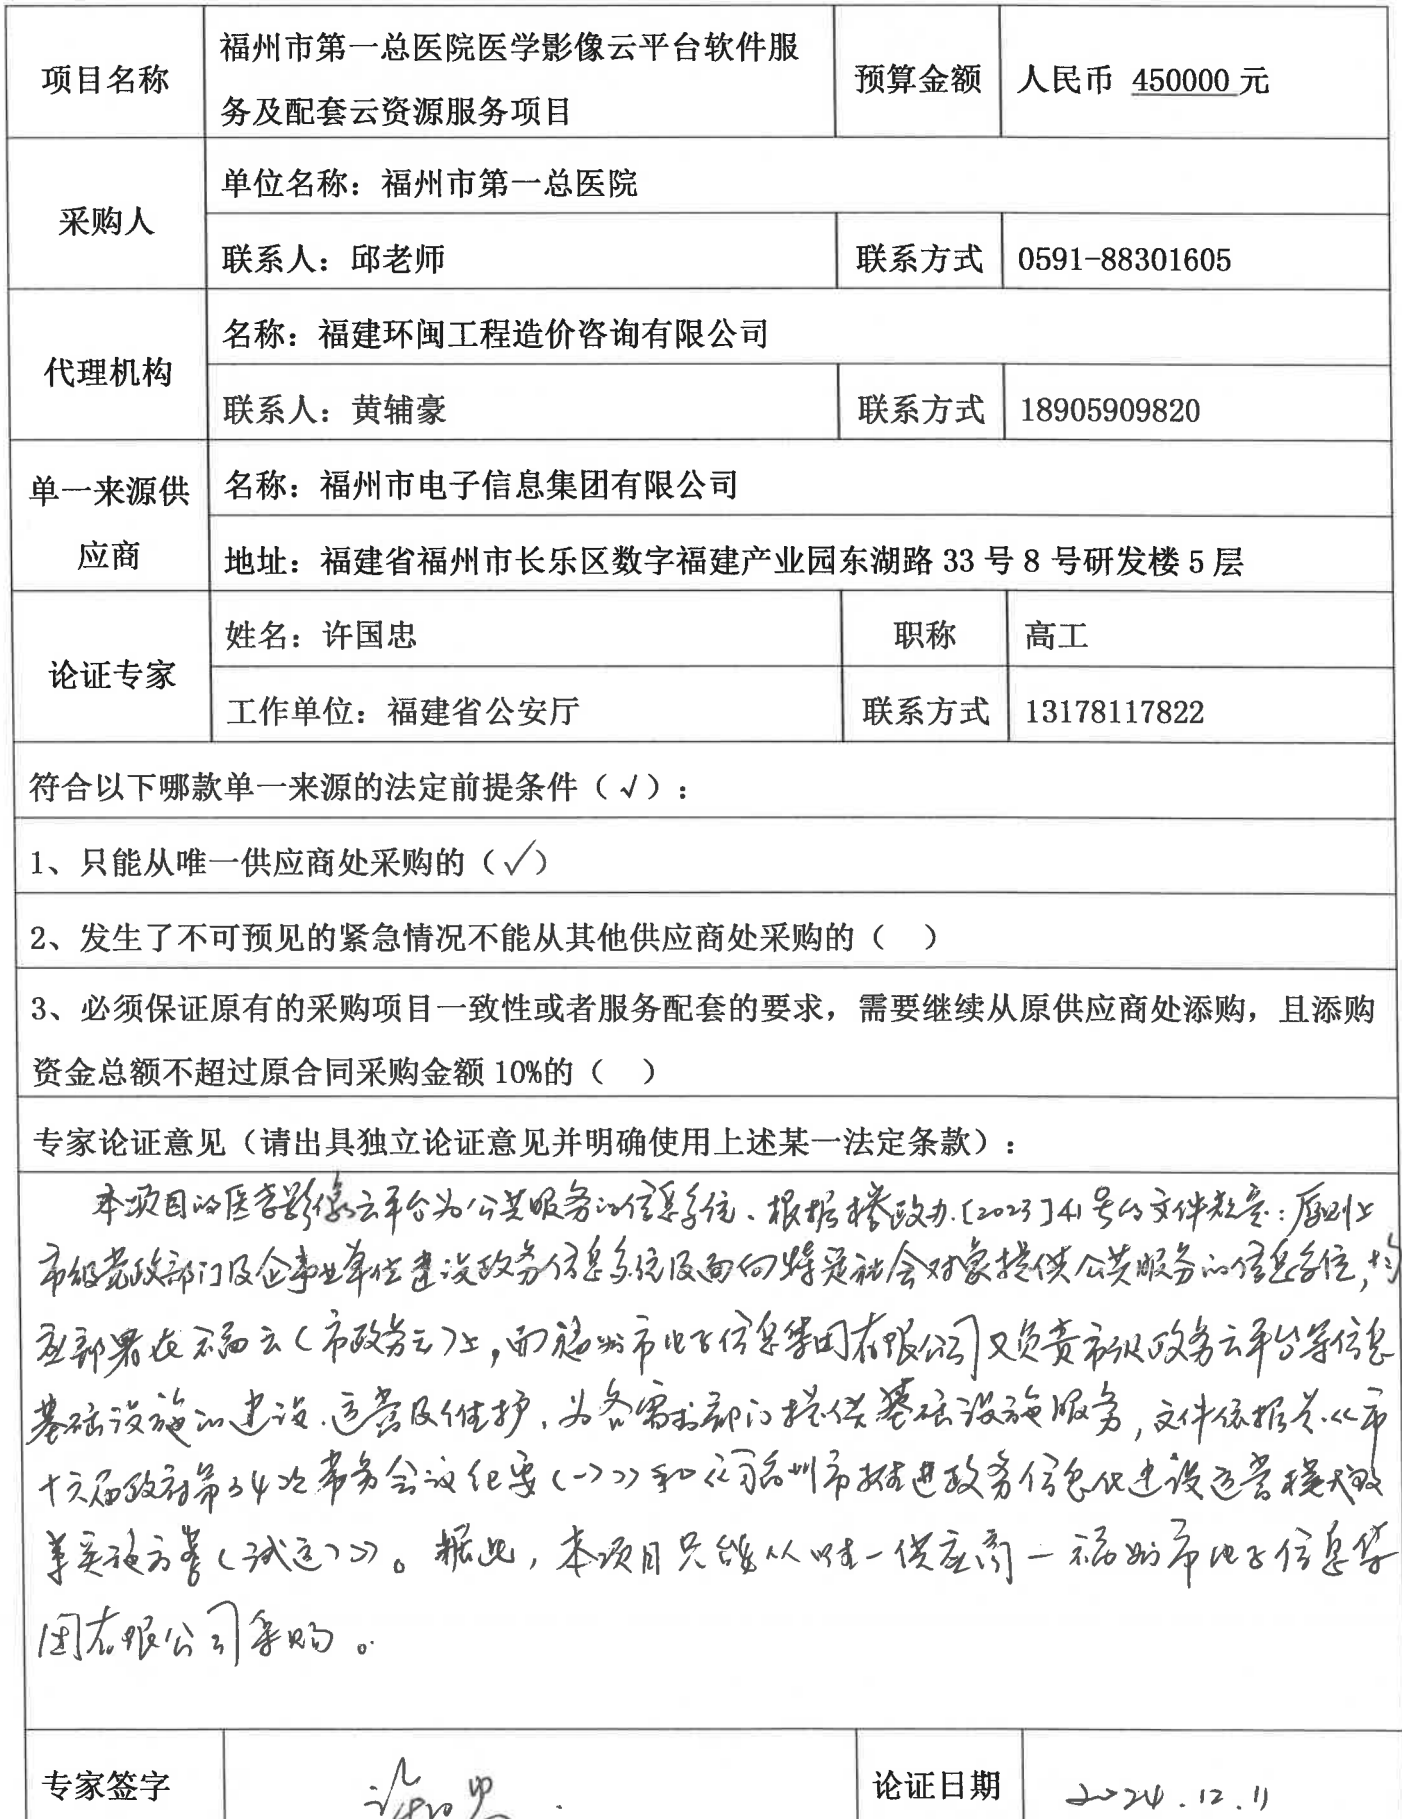 项目名称
福州市第一总医院医学影像云平台软件服
务及配套云资源服务项目
预算金额
人民币 450000 元
采购人
单位名称：福州市第一总医院
联系人：邱老师
联系方式
0591-88301605
代理机构
名称：福建环闽工程造价咨询有限公司
联系人：黄辅豪
联系方式
18905909820
单一来源供
应商
名称：福州市电子信息集团有限公司
地址：福建省福州市长乐区数字福建产业园东湖路 33 号 8 号研发楼 5 层
论证专家
姓名：许国忠
职称
高工
工作单位：福建省公安厅
联系方式
13178117822
符合以下哪款单一来源的法定前提条件（√）：
1、只能从唯一供应商处采购的（√）
2、发生了不可预见的紧急情况不能从其他供应商处采购的（ ）
3、必须保证原有的采购项目一致性或者服务配套的要求，需要继续从原供应商处添购，且添购
资金总额不超过原合同采购金额 10%的（ ）
专家论证意见（请出具独立论证意见并明确使用上述某一法定条款）：
本项目的医学影像云平台为公共服务的信息系统、根据榕政办[2023]41号的文件规定：原则上
市级党政部门及企事业单位建设政务信息系统及面向特定社会对象提供公共服务的信息系统，均
应部署在福云（市政务云）上，而福州市电子信息集团有限公司又负责市级政务云平台等信息
基础设施的建设、运营及维护，为各需求部门提供基础设施服务，文件依据《市
十六届政府第34次常务会议纪要（一）》和《福州市推进政务信息化建设运营模式改
革实施方案（试运）》。据此，本项目只能从唯一供应商—福州市电子信息集
团有限公司采购。
专家签字
许国忠
论证日期
2024.12.11